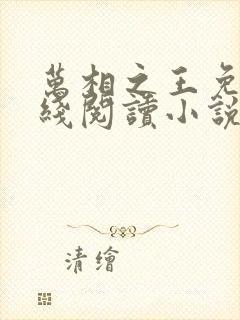 萬相之王免
綫閱讀小說
清繪